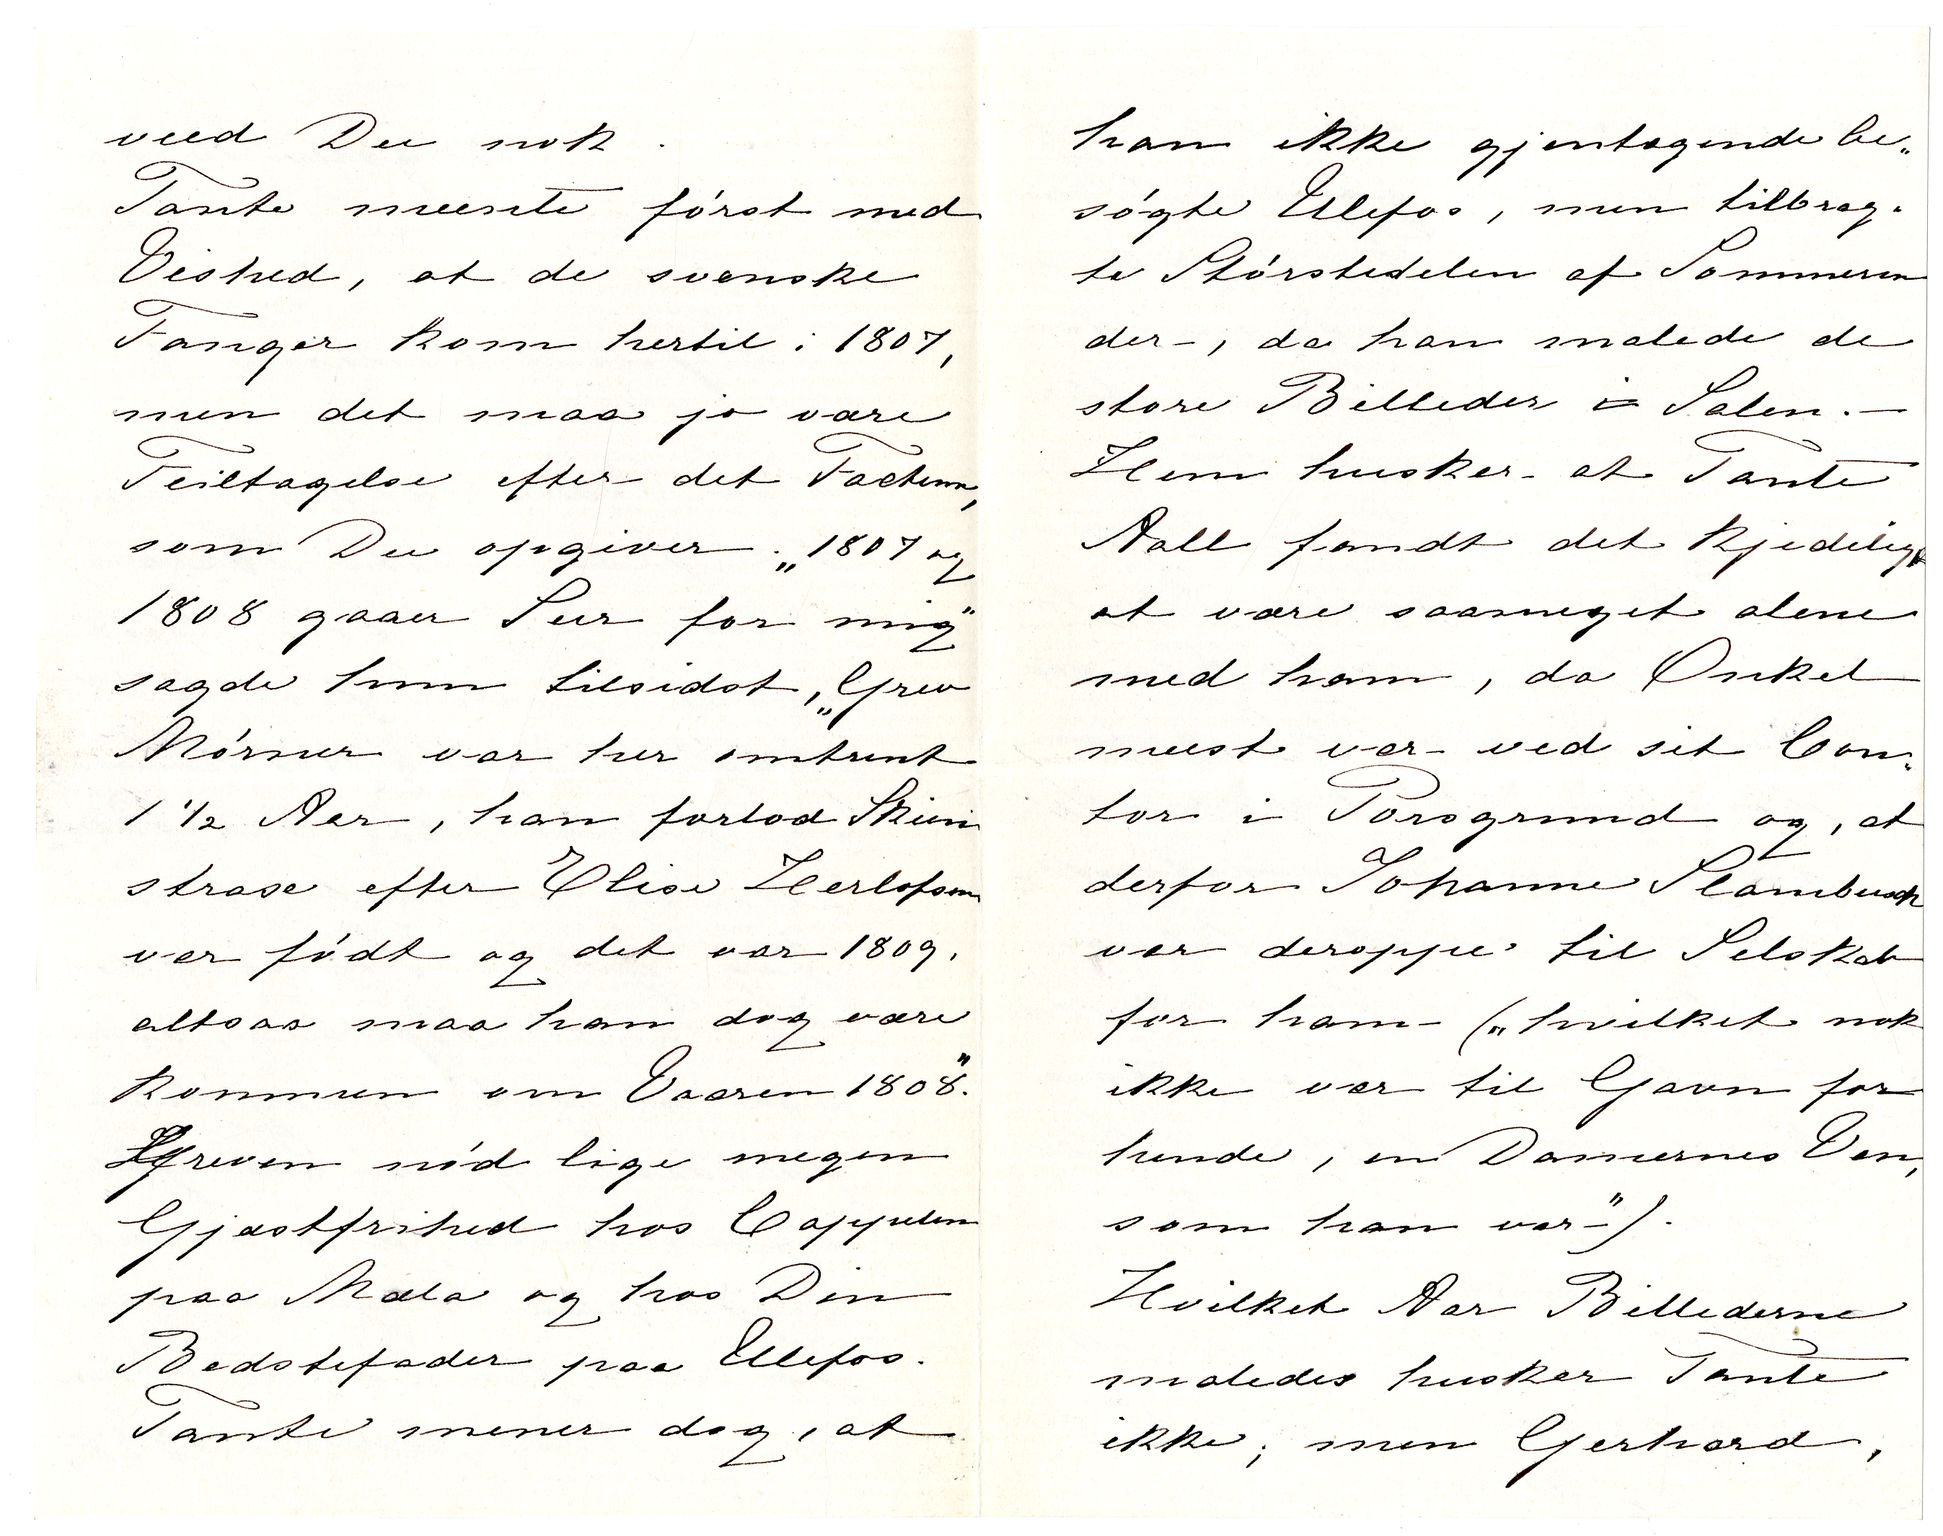 veed Du nok.
Tante meente först med
Vished, at de svenske
Fanger kom hertil i 1807,
men det maa jo være
Feiltagelse efter det Factum,
som Du opgiver. „1807 og
1808 gaaer Suur for mig"
sagde hun tilsidst, „Grev
Mörner var her omtrent
1 1/2 Aar, han forlod Skien
strax efter Elise Herlofsen
var född og det var 1809.
altsaa maa han dog være
kommen om Vaaren 1808".
Greven nöd lige megen
Gjæstfrihed hos Cappelen
paa Mæla og hos Din
Bedstefader paa Ulefos.
Tante mener dog, at
han ikke gjentagende be„
sögte Ulefos, men tilbrag„
te Störstedelen af Sommeren
der, da han malede de
store Billeder i Salen. —
Hun husker at Tante
Aall fandt det kjedeligt
at være saameget alene
med ham, da Onkel
meest var ved sit Con„
tor i Porsgrund og, at
derfor Johanne Stambusch
var deroppe til Selskab
for ham („hvilket nok
ikke var til Gavn for
hende, en Damernes Ven,
som han var").
Hvilket Aar Billederne
maledes husker Tante
ikke; men Gerhard,